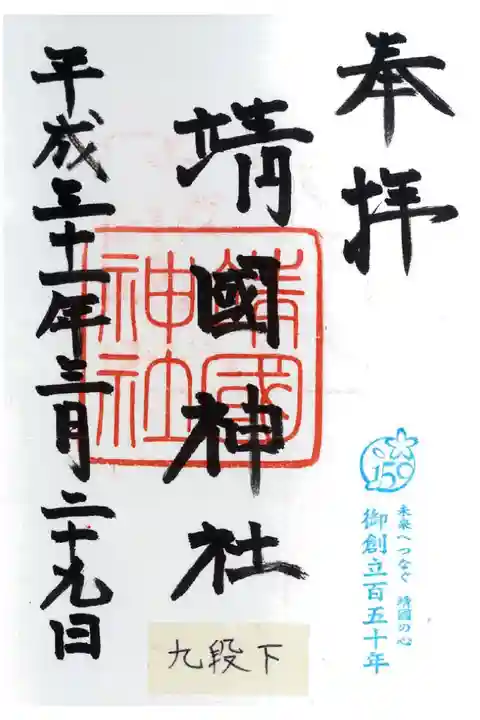 奉拝
靖國神社
靖國
神社
平成三十一年三月二十九日
150
未来へつなぐ 靖國の心
御創立百五十年
九段下